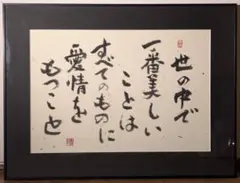 世の中で
一番美しい
ことは
すべてのものに
愛情を
もつこと